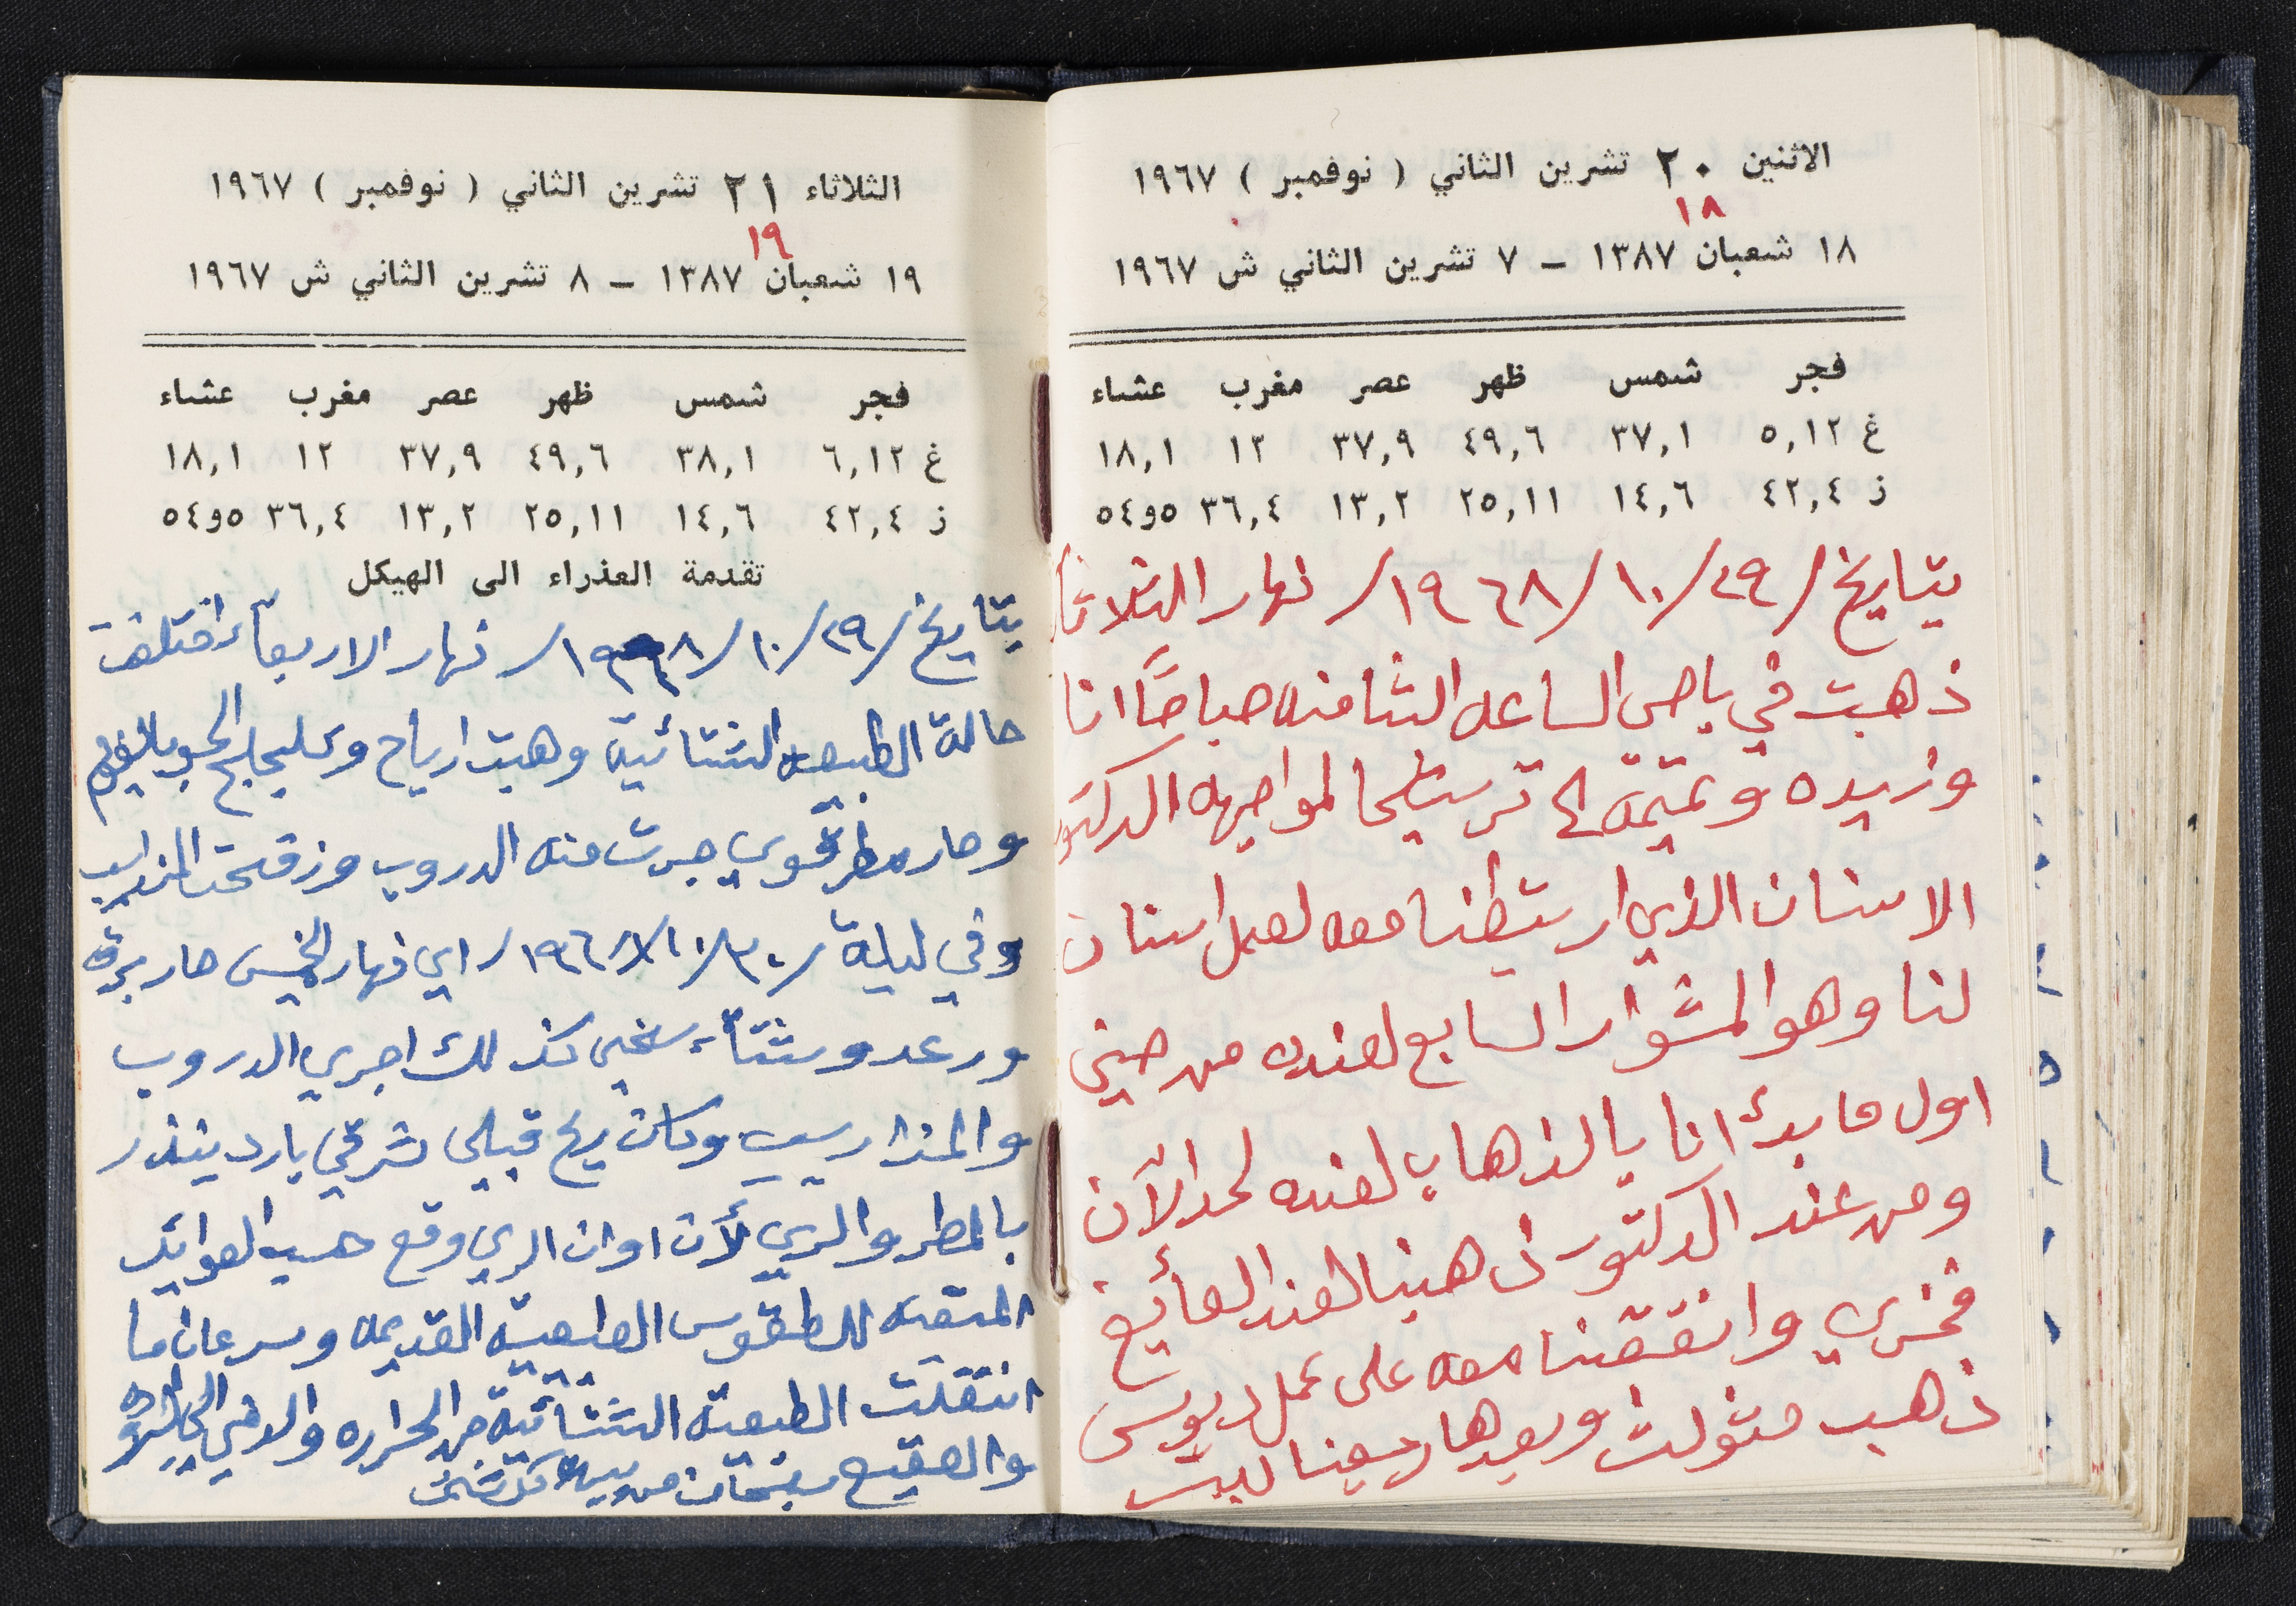 الاثنين ٢٠ تشرين الثاني ( نوفمبر ) ١٩٦٧
١٨
١٨ شعبان ١٣٨٧ – ٧ تشرين الثاني ش ١٩٦٧
فجر شمس ظهر عصر مغرب عشاء
غ ٥,١٢ ٣٧,١ ٤٩,٦ ٣٧,٩ ١٢ ١٨,١
ز ٤٢,٤ ١٤,٦ ٢٥,١١ ١٣,٢ ٣٦,٤ ٥و٥٤
بتاريخ /٢٩/ ١٠/ ١٩٦٨/ نهار الثلاثا
ذهبت في باص الساعه الثامنه صباحاً انا
وزيده و ترشيحا لمواجهه الدكتور
الاسنان الذي ارتبطنا معه لعمل اسنان
لنا وهو المشوار السابع لعنده من حين
اول ما بدئ انا بالذهاب لعنده لحد الآن
ومن عند الدكتور ذهبنا لعند الصائغ
فخري واتفقنا معه على عمل دبوس
ذهب وبعدها رجعنا للبيت
الثلاثاء ٢١ تشرين الثاني ( نوفمبر ) ١٩٦٧
١٩
١٩ شعبان ١٣٨٧ – ٨ تشرين الثاني ش ١٩٦٧
فجر شمس ظهر عصر مغرب عشاء
غ ٦,١٢ ٣٨,١ ٤٩,٦ ٣٧,٩ ١٢ ١٨,١
ز ٤٢,٤ ١٤,٦ ٢٥,١١ ١٣,٢ ٣٦,٤ ٥و٥٤
تقدمة العذراء الى الهيكل
بتاريخ /٢٩/ ١٠/ ١٩٦٨/ نهار الاربعاء اختلفت
حالة الطبيعه الشتائية وهبت ارياح الجو بالغيوم
وصار مطر قوي جرت منه الدروب المزاريب
وفي ليلة /٣٠/ ١٠/ ١٩٦٨/ اي نهار الخميس صار برق
ورعد وشتاء سخي كذلك اجرى الدروب
والمزاريب وكان ريح قبلي شرقي بارد ينذر
بالمطر والري لأن اوان الري وقع حسب العوايد
المتبعه للطقوس الطبعية القديمه وسرعان ما
انتقلت الطبيعة الشتائية من الحراره والدفئ الى البروده
والصقيع